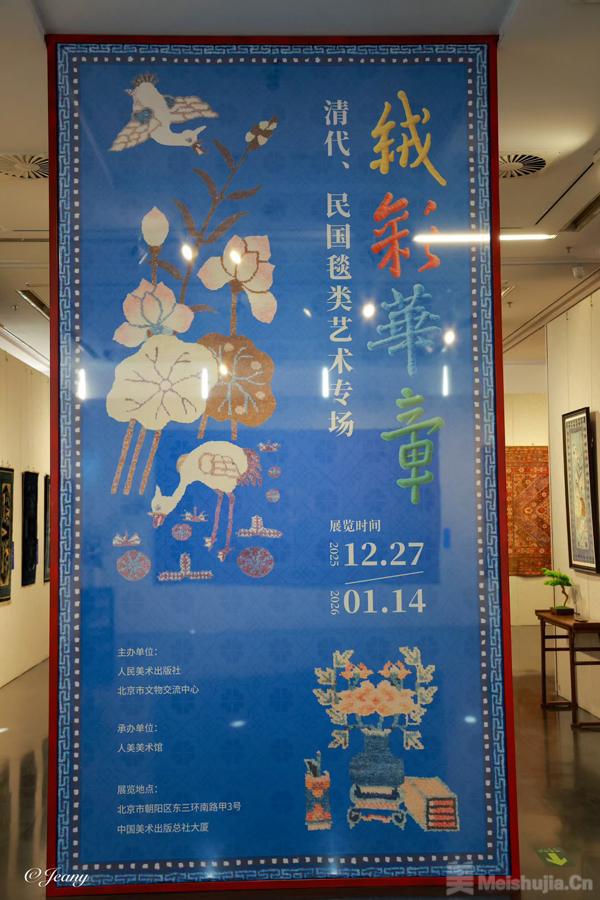 绒彩華章
清代、民国毯类艺术专场
展览时间
2025 12.27
2026 01.14
主办单位：
人民美术出版社
北京市文物交流中心
承办单位：
人美美术馆
展览地点：
北京市朝阳区东三环南路甲3号
中国美术出版总社大厦
©Jeany
美 Meishujia.Cn